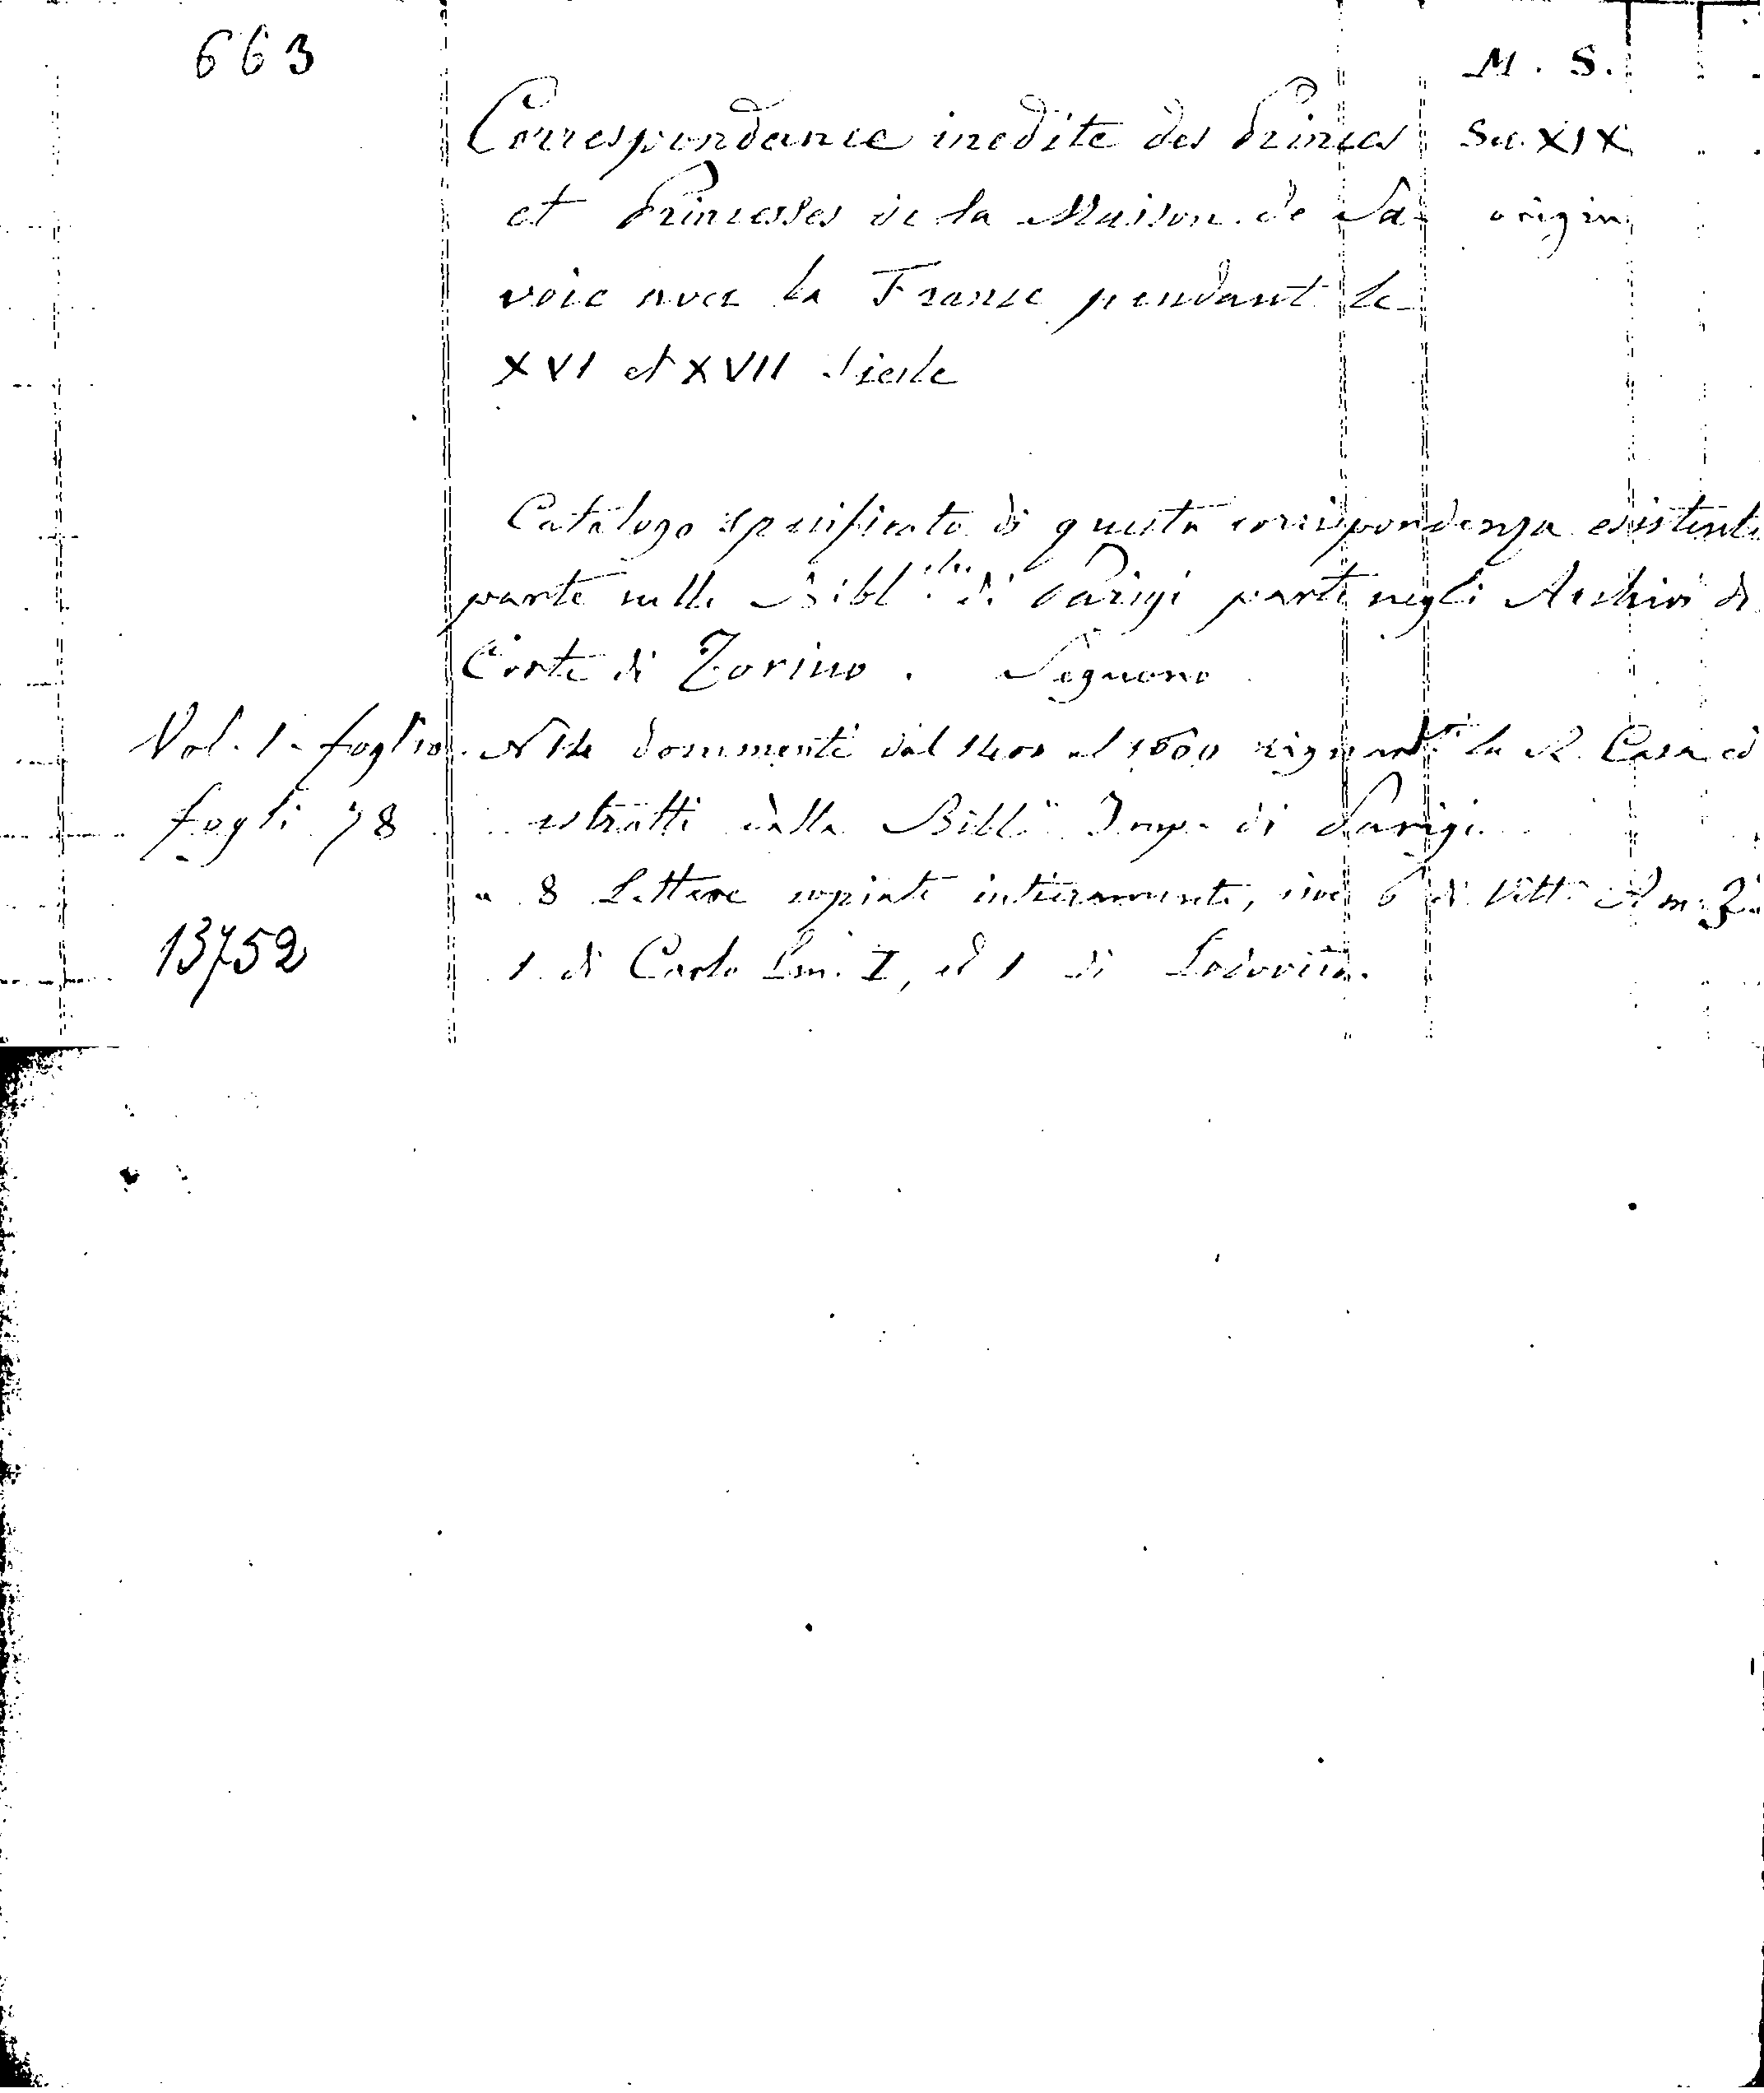 663
M. S.
Correspondance inedite des Princes Sec. XIX
et Princesses de la Maison de Sa- origin
voie avec la France pendant le
XVI et XVII Siecle
Catalogo specificato di questa corrispondenza esistente
parte nelle Bibl.che di Parigi parte negli Archivi di
Corte di Torino. Seguono
Vol. 1 - foglio. N 14 documenti dal 1400 al 1600 riguardti la R. Casa ed
fogli 78 estratti dalla Bibl. Imp. di Parigi.
" 8 Lettere copiate intieramente, cioè 6 di Vitt. Am.
13752 1 di Carlo Em. I, ed 1 di Lodovica.